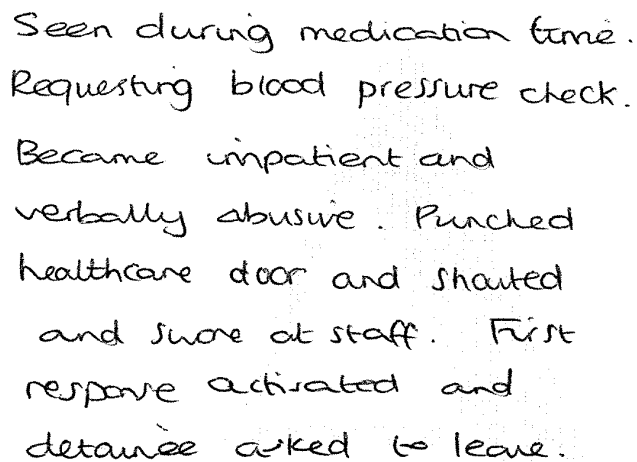 Seen during medication time.
Requesting blood pressure check.
Became impatient and
verbally abusive. Punched
healthcare door and shouted
and swore at staff. First
response activated and
detainee asked to leave.